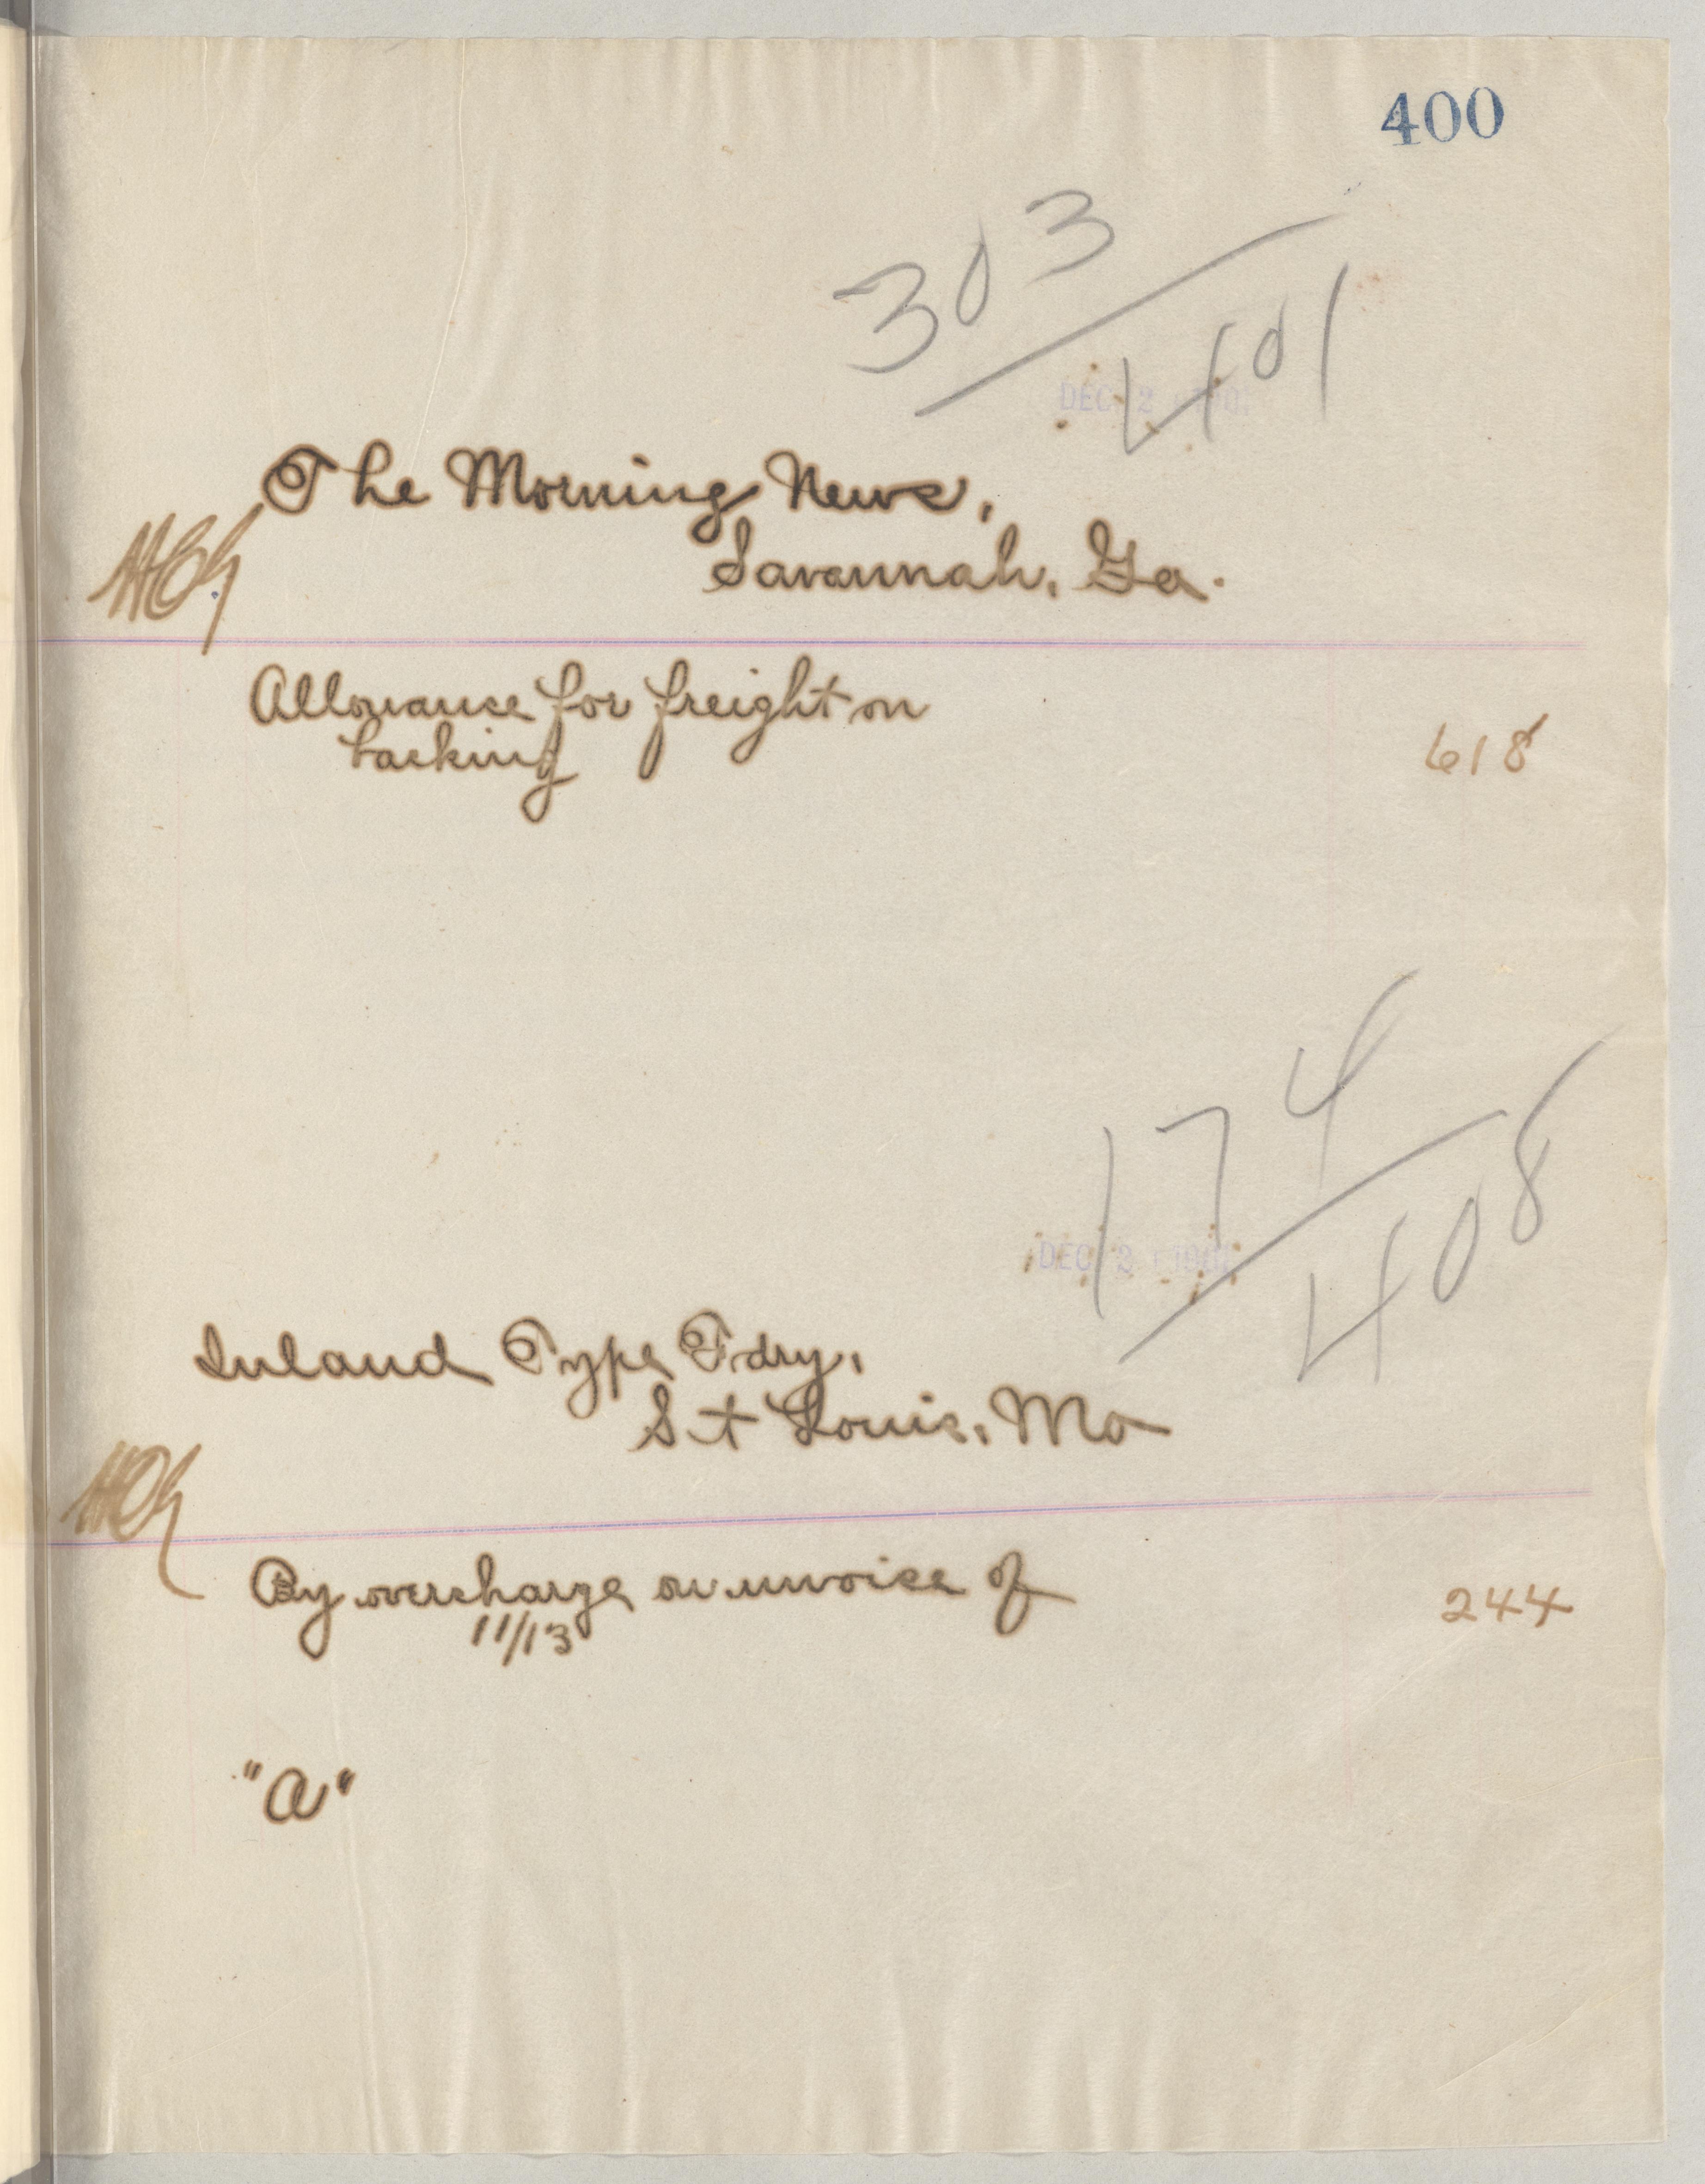 400
303
401
DEC 2 190
The Morning News,
Savannah, Ga.
Allowance for freight on
backing
618
174
408
DEC 2 190
Inland Type Fdry,
St Louis, Mo
By overcharge on invoice of
11/13
244
"A"